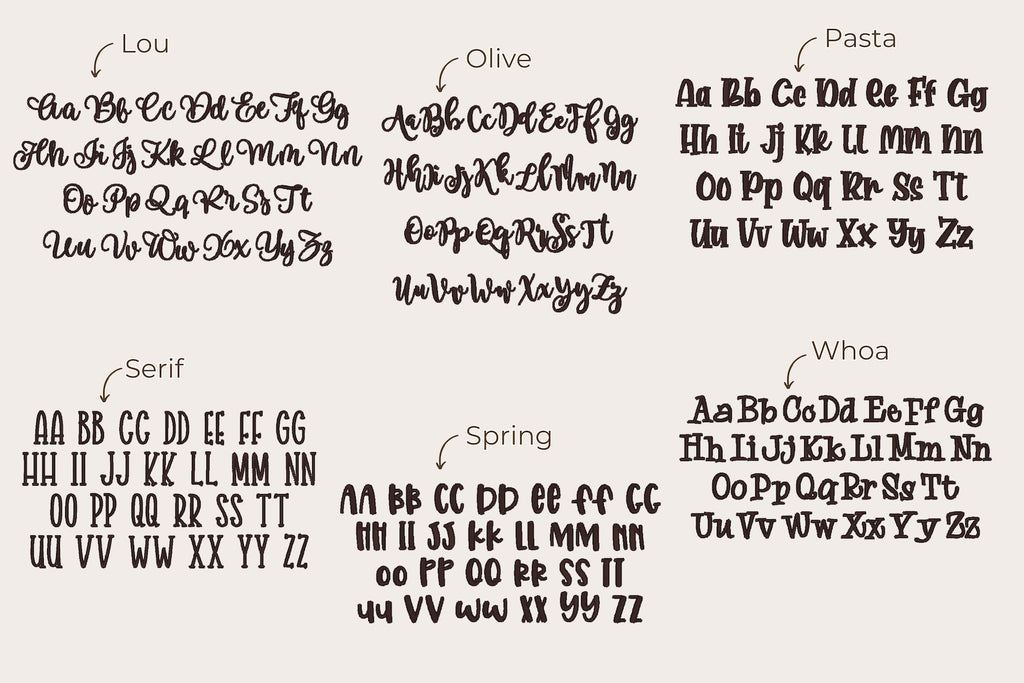 Lou
Aa Bb Cc Dd Ee Ff Gg
Hh Ii Jj Kk Ll Mm Nn
Oo Pp Qq Rr Ss Tt
Uu Vv Ww Xx Yy Zz
Olive
Aa Bb Cc Dd Ee Ff Gg
Hh Ii Jj Kk Ll Mm Nn
Oo Pp Qq Rr Ss Tt
Uu Vv Ww Xx Yy Zz
Pasta
Aa Bb Cc Dd Ee Ff Gg
Hh Ii Jj Kk Ll Mm Nn
Oo Pp Qq Rr Ss Tt
Uu Vv Ww Xx Yy Zz
Serif
AA BB CC DD EE FF GG
HH II JJ KK LL MM NN
OO PP QQ RR SS TT
UU VV WW XX YY ZZ
Spring
AA BB CC DD ee ff GG
HH II JJ KK LL MM NN
OO PP QQ RR SS TT
uu VV WW XX YY ZZ
Whoa
Aa Bb Cc Dd Ee Ff Gg
Hh Ii Jj Kk Ll Mm Nn
Oo Pp Qq Rr Ss Tt
Uu Vv Ww Xx Yy Zz